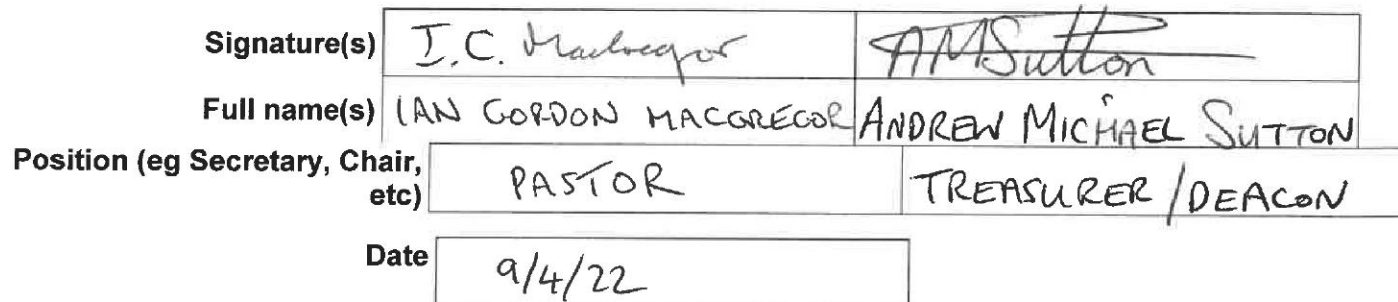 Signature(s) I.C. MacGregor AMSutton
Full name(s) IAN GORDON MACGREGOR ANDREW MICHAEL SUTTON
Position (eg Secretary, Chair, etc) PASTOR TREASURER/DEACON
Date 9/4/22